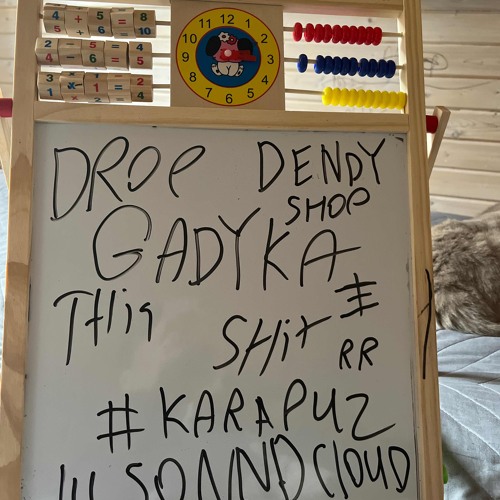 4 5 = 8
5 + 6 = 10
2 4 5 = 2
4 - 6 = 4
3 x 1 = 4
12 1 2 3 4 5 6 7 8 9 10 11
DROP DENDY
SHOP
GADYKA
THiS
SHiT
RR
#KARAPUZ
SOUNDCLOUD